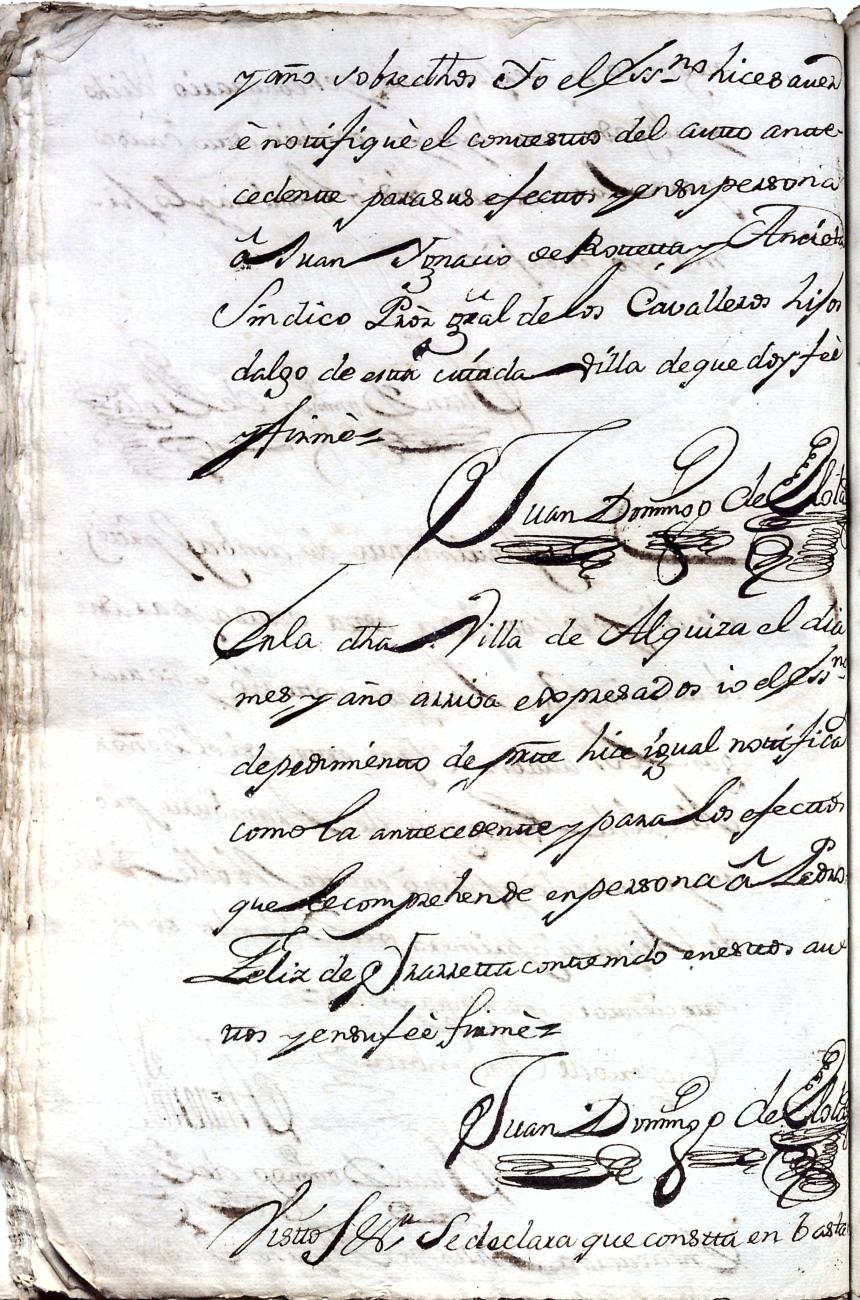 y año sobre dhos Yo el Essno hice saver
è notifiquè el contestto del autto antte-
cedentte para sus efecttos y en su persona
â Juan Ygnacio de Rottetta y Ancieta
Sindico Pror gral de los Cavalleros hijos
dalgo de estta cittada Villa de que doy feè
y firmè
Juan Domingo de
En la dha Villa de Alquiza el dia
mes y año arriva expresados io el Essno
de pedimientto de partte hice igual nottifica
como la anttecedentte y para los efecttos
que le comprehende en persona â Pedro
Feliz de Yrarretta conttenido en esttos au
ttos y en su feè firmè
Juan Domingo de
Vistto S&a Se declara que constta en basta